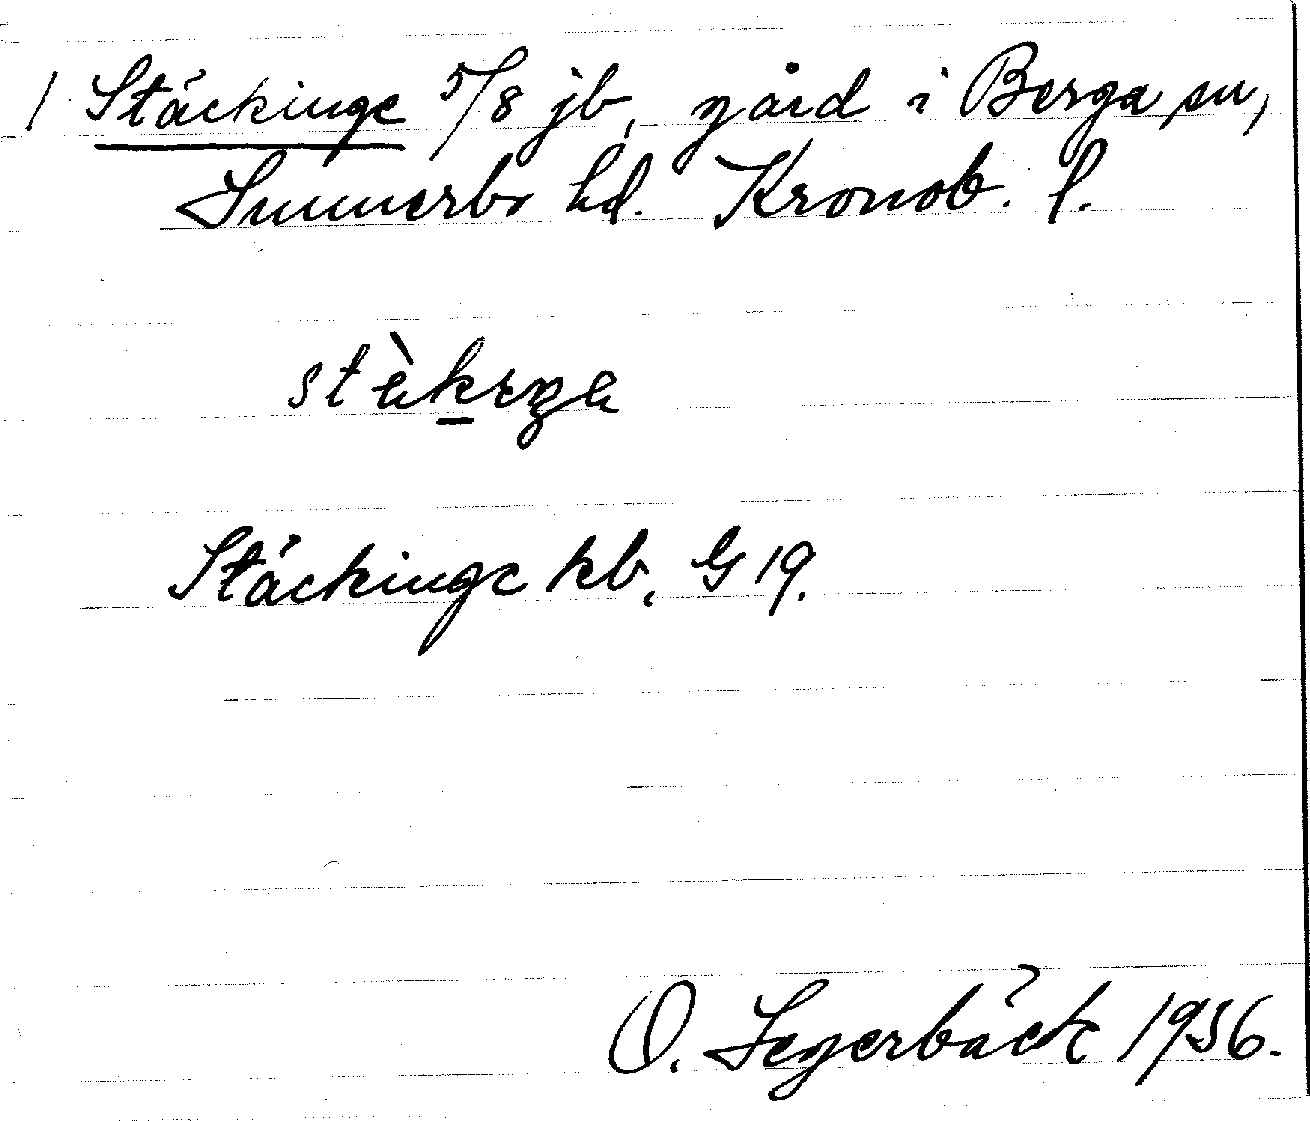 / Stäckinge 5/8 jb, gård i Berga sn,
Sunnerbo hd. Kronob. l.
Stäckinge kb. G 19.
O. Segerbäck 1956.